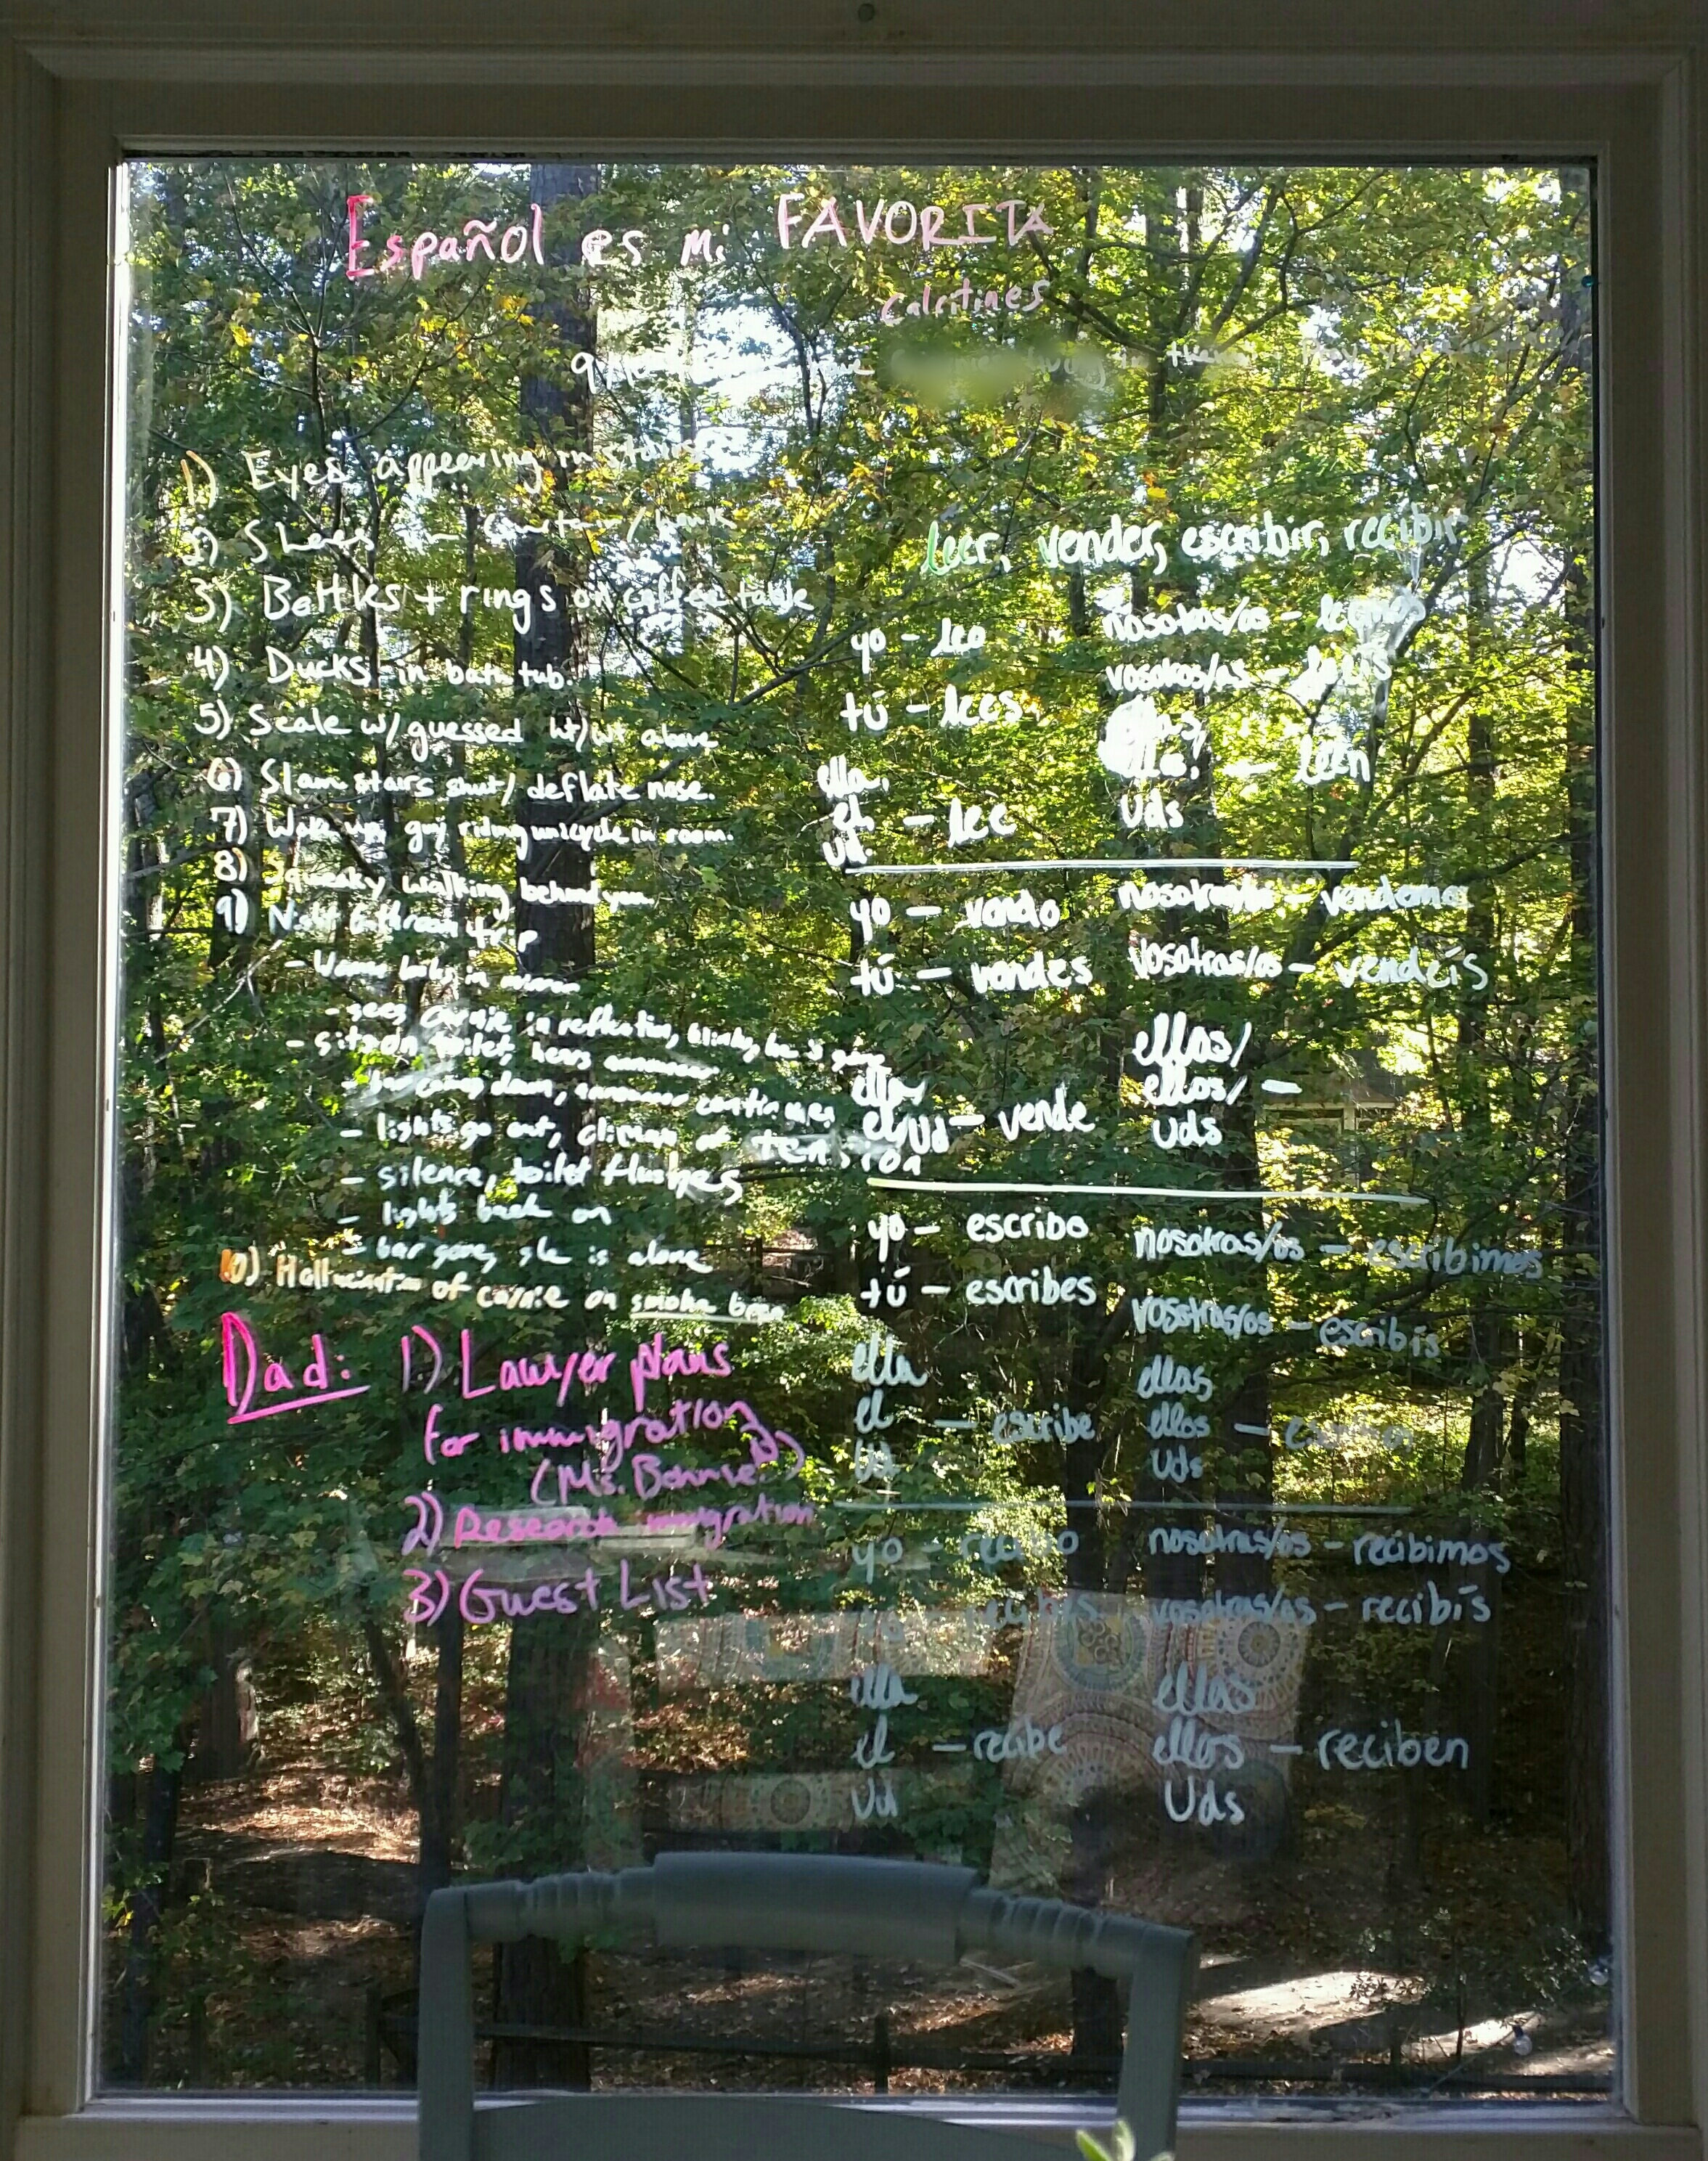 Español es mi FAVORITA
calcitines
1) Eyes appearing in stairs
2) Shoes in curtain/
3) Bottles + rings on coffee table
4) Ducks in bath tub.
5) Scale w/ guessed ht/wt above
6) Slam stairs shut/ deflate nose.
7) Wake up, guy riding unicycle in room.
8) Squeaky walking behind you
9) Night bathroom trip
- looks in mirror
- sees carnie in reflection, blinks, he's gone
- sits on toilet, hears
- bar comes down, continues
- lights go out, climax of tension
- silence, toilet flushes
- lights back on
- bar gone, she is alone
10) Hallucination of carnie on smoke break
Dad: 1) Lawyer plans
for immigration
(Ms. Bonnie)
2) Research immigration
3) Guest List
leer, vender, escribir, recibir
yo - leo
tú - lees
ella,
el, - lee
Ud.
nosotros/as -
vosotros/as - leéis
- leen
Uds
yo - vendo
tú - vendes
ella/
el/Ud - vende
nosotras/os - vendemos
vosotras/os - vendeís
ellas/
ellos/ -
Uds
yo - escribo
tú - escribes
ella
el - escribe
Ud
nosotras/os - escribimos
vosotras/os - escribís
ellas
ellos -
Uds
yo - recibo
recibes
ella
el - recibe
Ud
nosotras/os - recibimos
vosotras/os - recibís
ellas
ellos - reciben
Uds